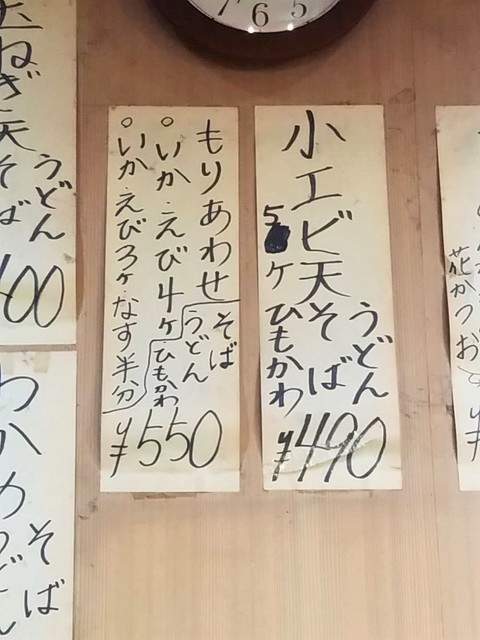 7 6 5
小エビ天
5ヶ
うどん
そば
ひもかわ
¥490
もりあわせ
・いか・えび4ヶ
・いか・えび3ヶなす半分
そば
うどん
ひもかわ
¥550
玉ねぎ天
うどん
そば
400
わかめ
そば
花かつお
¥